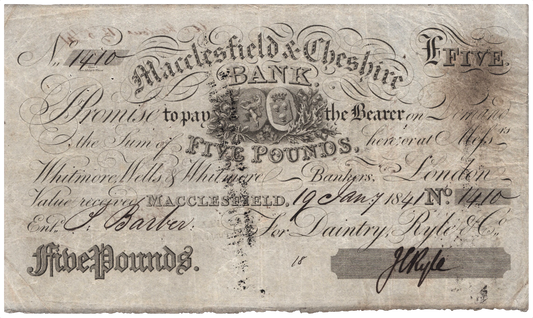 No. 1410
£ FIVE.
Macclesfield & Cheshire
BANK.
I Promise to pay the Bearer on Demand
the Sum of FIVE POUNDS. here or at Messrs
Whitmore, Wells & Whitmore Bankers, London
Value received MACCLESFIELD, 19 Jany 1841 No 1410
Entd. Barber. For Daintry, Ryle & Co
Five Pounds.
18
JCRyle